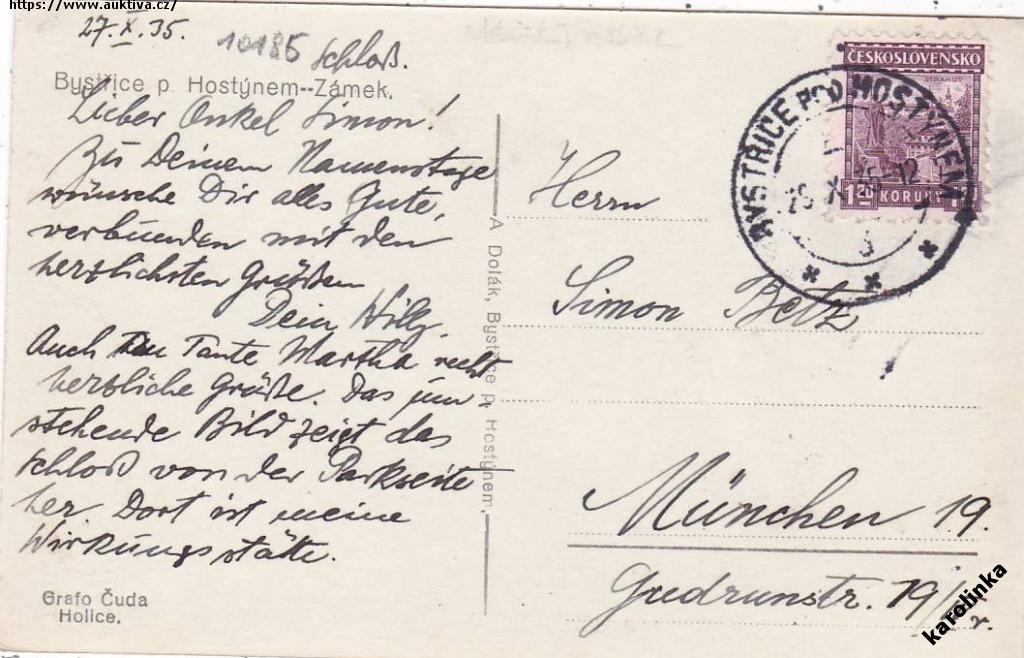 https://www.auktiva.cz/
27.X.35.
10185
Schloß.
Bystřice p. Hostýnem--Zámek.
Lieber Onkel Simon!
Zu Deinem Namenstage
wünsche Dir alles Gute,
verbunden mit den
herzlichsten Grüßen
Dein Willy.
Auch Tante Martha recht
herzliche Grüße. Das um-
stehende Bild zeigt das
Schloß von der Parkseite
her. Dort ist meine
Wirkungsstätte.
Grafo Čuda
Holice.
A Dolák, Bystřice p. Hostýnem.
ČESKOSLOVENSKO
STRAHOV
1.20 KORUN 1.20
BYSTŘICE POD HOSTÝNEM
Herrn
Simon Betz
München 19.
Gudrunstr. 19/
r.
karolinka